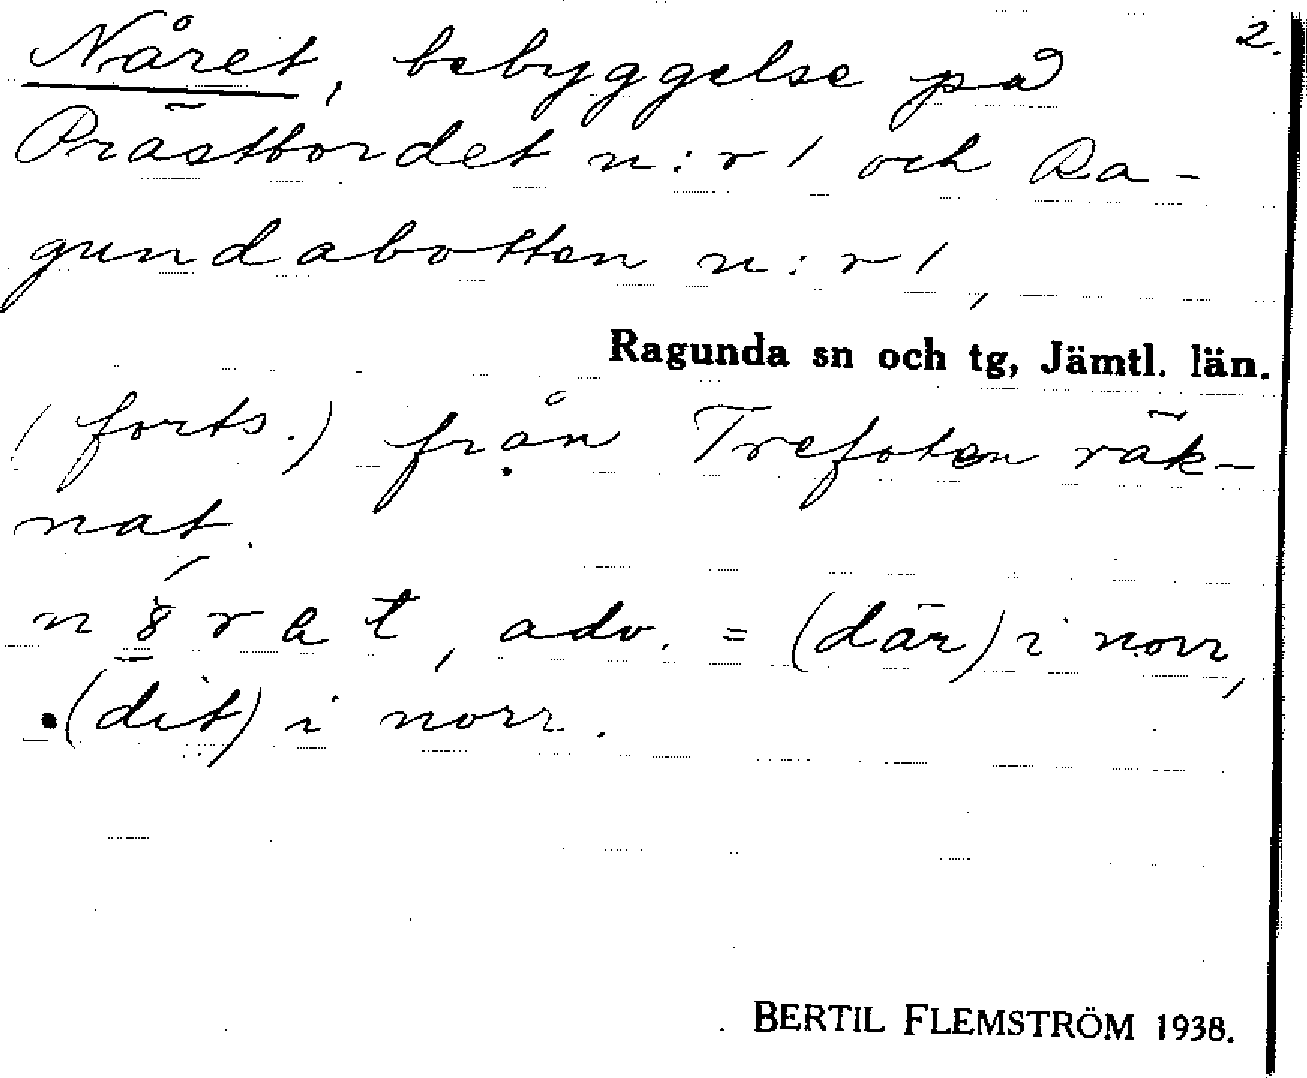 2.
Nåret, bebyggelse på
Prästbordet n:r 1 och Ra-
gundabotten n:r 1,
Ragunda sn och tg, Jämtl. län.
(forts.) från Trefoten räk-
nat.
adv. = (där) i norr,
(dit) i norr.
BERTIL FLEMSTRÖM 1938.